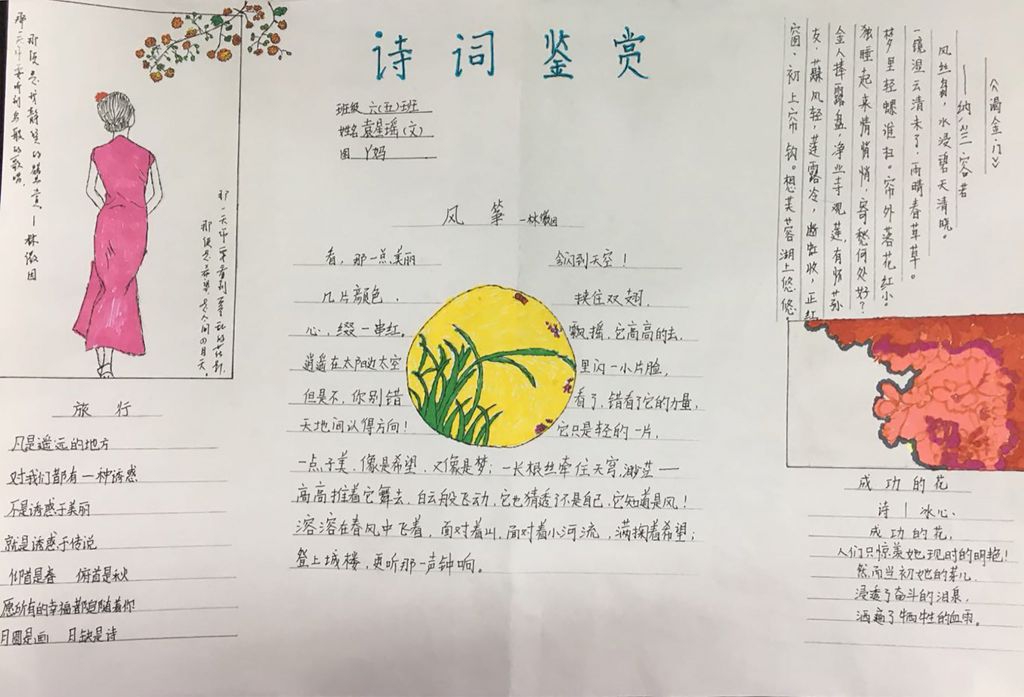 诗词鉴赏
班级 六(五)班
姓名 袁星瑶(文)
图 丫妈
那一天你要听到鸟歌的歌唱,
那便是我静坐的赞赏 — 林徽因
那一天你要看到
那便是希望是人间四月天。
风筝 —林徽因
看,那一点美丽
会闪到天空!
几片颜色,
挟住双翅,
心,缀一串红。
飘摇,它高高的去,
逍遥在太阳边太空
里闪一小片脸,
但是不,你别错
看了,错看了它的力量,
天地间认得方向!
它只是轻的一片,
一点子美,像是希望,又像是梦;一长根丝牵住天穹,渺茫——
高高推着它舞去,白云般飞动,它也猜透了不是自己,它知道是风!
溶溶在春风中飞着,面对着山,面对着小河流,满掬着希望;
登上城楼,更听那一声钟响。
《谒金门》
——纳兰容若
风丝袅,水浸碧天清晓。
一镜湿云清未了,雨晴春草草。
梦里轻螺谁扫。帘外落花红小。
独睡起来情悄悄,寄愁何处好?
金人捧露盘,净业寺观莲,有怀荪
友,藕风轻,莲露冷,断虹收,正红
窗、初上帘钩。想芙蓉湖上悠悠。
旅行
凡是遥远的地方
对我们都有一种诱惑
不是诱惑于美丽
就是诱惑于传说
仰首是春 俯首是秋
愿所有的幸福都追随着你
月圆是画 月缺是诗
成功的花
诗 | 冰心.
成功的花,
人们只惊羡她现时的明艳!
然而当初她的芽儿,
浸透了奋斗的泪泉,
洒遍了牺牲的血雨。